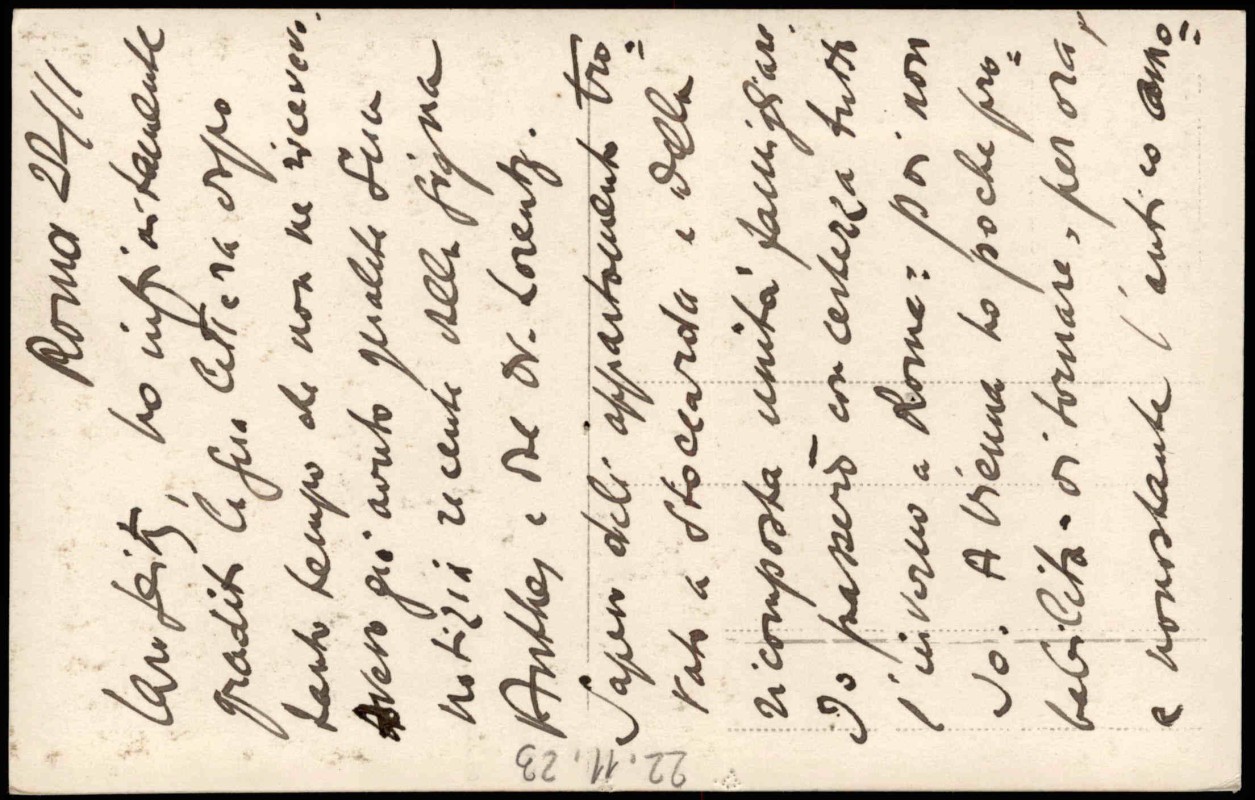 Roma 22/11
Caro Fritz, ho infinitamente
gradita la Sua lettera dopo
tanto tempo che non ne ricevevo.
Avevo già avuto qualche Sua
notizia recente dalla Sigra
Anthes e dal Dr. Lorentz.
Sapevo dell'appartamento tro=
vato a Stoccarda e della
ricomposta unità famigliare
Io passerò con certezza tutto
l'inverno a Roma: poi non
so. A Vienna ho poche pro=
babilità di tornare, per ora,
e nonostante l'antico amo=
22.11.23